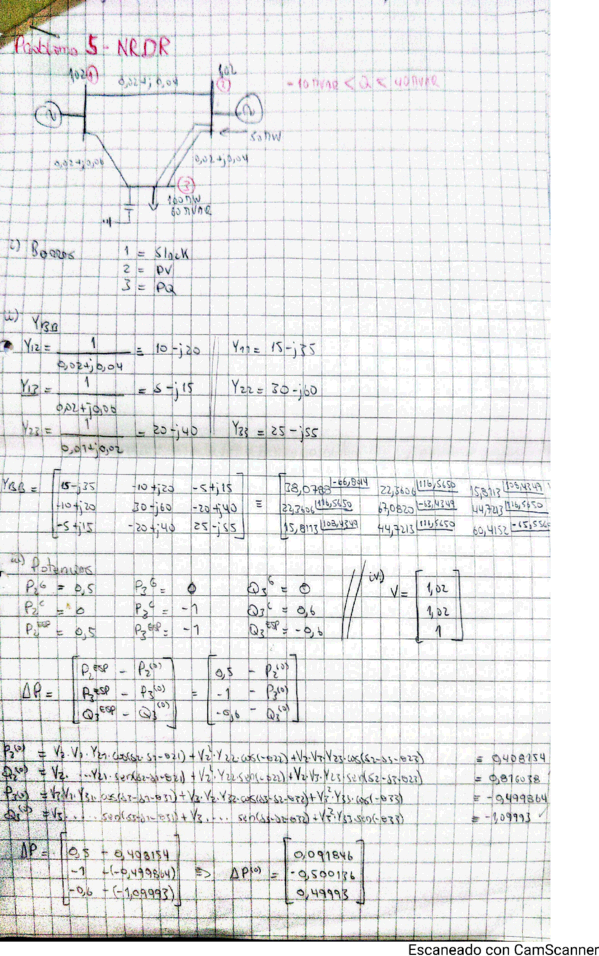 Problema 5 - NRDR
1∠0 ① 0,02+j0,04 1∠02 ② -10 MVAR < Q < 40 MVAR
50 MW
0,02+j0,04
③
100 MW
60 MVAR
i) Barras 1 = Slack
2 = PV
3 = PQ
ii) YBB
Y12 = 1 / 0,02+j0,04 = 10-j20 Y11 = 15-j35
Y13 = 1 / = 5-j15 Y22 = 30-j60
Y23 = 1 / 0,01+j0,02 = 20-j40 Y33 = 25-j55
YBB = [ 15-j35 -10+j20 -5+j15 ] = [ 38,0789 22,3606 |116,5650 15,8113 |108,4349 ]
[ -10+j20 30-j60 -20+j40 ] [ 22,3606 |116,5650 67,0820 |-63,4349 44,7213 |116,5650 ]
[ -5+j15 -20+j40 25-j55 ] [ 15,8113 |108,4349 44,7213 |116,5650 60,4152 ]
iii) Potencias
P2^G = 0,5 P3^G = 0 Q3^G = 0 iv) V = [ 1,02
P2^C = 0 P3^C = -1 Q3^C = 0,6 1,02
P2^ESP = 0,5 P3^ESP = -1 Q3^ESP = -0,6 1 ]
ΔP = [ P2^ESP - P2^(0) ] = [ 0,5 - P2^(0) ]
[ P3^ESP - P3^(0) ] [ -1 - P3^(0) ]
[ Q3^ESP - Q3^(0) ] [ -0,6 - Q3^(0) ]
P2^(0) = V2·V1·Y21·cos(δ2-δ1-θ21) + V2²·Y22·cos(-θ22) + V2·V3·Y23·cos(δ2-δ3-θ23) = 0,408154
Q2^(0) = V2· ... Y21·sen(δ2-δ1-θ21) + V2²·Y22·sen(-θ22) + V2·V3·Y23·sen(δ2-δ3-θ23) = 0,816038
P3^(0) = V3·V1·Y31·cos(δ3-δ1-θ31) + V3·V2·Y32·cos(δ3-δ2-θ32) + V3²·Y33·cos(-θ33) = -0,499864
Q3^(0) = V3. .... sen(δ3-δ1-θ31) + V3. ... sen(δ3-δ2-θ32) + V3²·Y33·sen(-θ33) = -1,09993
ΔP = [ 0,5 - 0,408154 ] ⇒ ΔP^(0) = [ 0,091846 ]
[ -1 +(-0,499864) ] [ -0,500136 ]
[ -0,6 - (-1,09993) ] [ 0,49993 ]
Escaneado con CamScanner